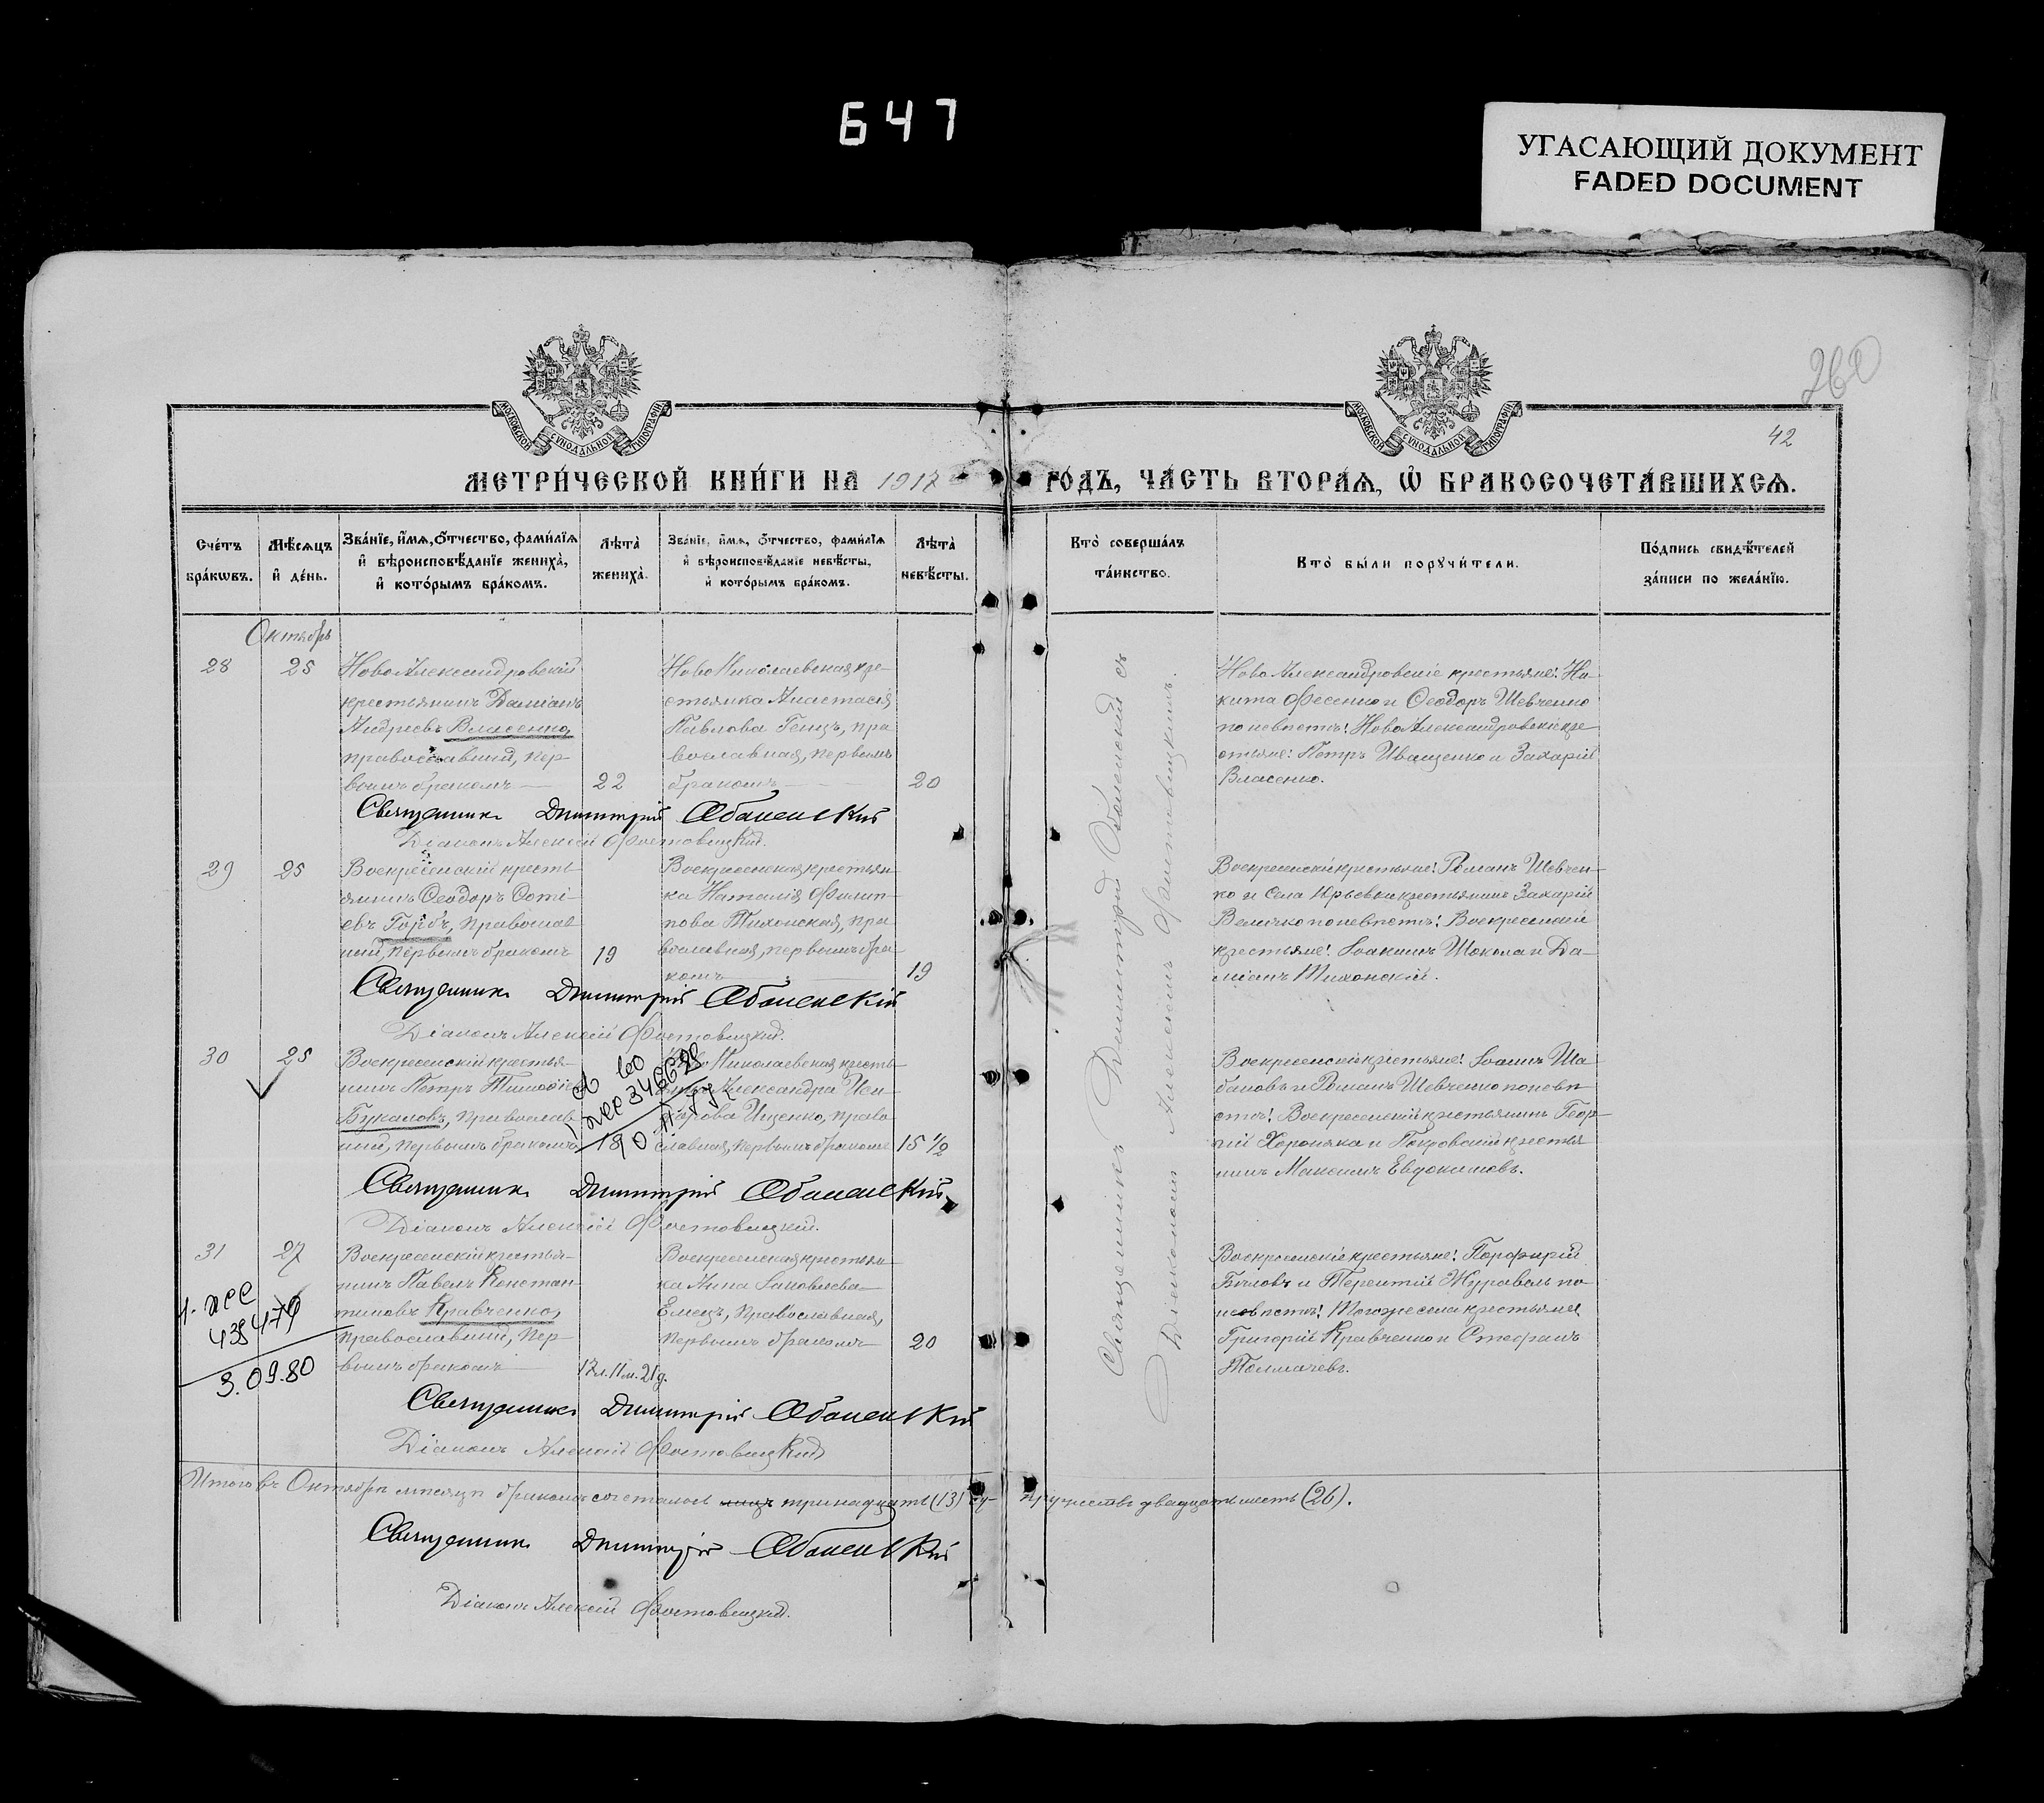 647
УГАСАЮЩИЙ ДОКУМЕНТ
FADED DOCUMENT
260
42
МОСКОВСКОЙ СѴНОДАЛЬНОЙ ТИПОГРАФІИ
МОСКОВСКОЙ СѴНОДАЛЬНОЙ ТИПОГРАФІИ
МЕТРИ́ЧЕСКОЙ КНИ́ГИ НА 1917 ГО́ДЪ, ЧА́СТЬ ВТОРА́Ѧ, Ѽ БРАКОСОЧЕТА́ВШИХСѦ.
Сче́тъ бра́кѡвъ.
Мѣ́сѧцъ и҆ де́нь.
Зва́нїе, и҆́мѧ, ѻ҆́тчество, фами́лїѧ и҆ вѣроисповѣ́данїе жениха̀, и҆ кото́рымъ бра́комъ.
Лѣ̑та̀ жениха̀.
Зва́нїе, и҆́мѧ, ѻ҆́тчество, фами́лїѧ и҆ вѣроисповѣ́данїе невѣ́сты, и҆ кото́рымъ бра́комъ.
Лѣ̑та̀ невѣ́сты.
Кто̀ соверша́лъ та́инство.
Кто̀ бы́ли порꙋчи́тели.
По́дпись свидѣ́телей за́писи по жела́нїю.
Октябрь
28
25
НовоАлександровскій
крестьянинъ Даміанъ
Андреевъ Власенко,
православный, пер-
вымъ бракомъ
22
НовоНиколаевская кре-
стьянка Анастасія
Павлова Генцъ, пра
вославная, первымъ
бракомъ
20
НовоАлександровскіе крестьяне: Ни-
кита Фесенко и Ѳеодоръ Шевченко
по невѣстѣ: НовоАлександровскіе кре
стьяне: Петръ Иващенко и Захарій
Власенко.
Священникъ Димитрій Оболенскій
Діаконъ Алексій Фостовицкій.
29
25
Воскресенскій кресть
янинъ Ѳеодоръ Соті-
евъ Горбъ, православ
ный, первымъ бракомъ
19
Воскресенская крестьян
ка Наталія Филип-
пова Тихонская, пра
вославная, первымъ бра-
комъ
19
Воскресенскіе крестьяне: Романъ Шевчен-
ко и села Юрьевки крестьянинъ Захарій
Величко по невѣстѣ: Воскресенскіе
крестьяне: Іоакимъ Шокола и Да-
міанъ Тихонскій.
Священникъ Димитрій Оболенскій
Діаконъ Алексій Фостовицкій.
30
25
Воскресенскій крестья-
нинъ Петръ Тимоѳіев
Букановъ, православ
ный, первымъ бракомъ
НовоНиколаевская кресть
янка Александра
Ищенко, право
славная, первымъ бракомъ
15 1/2
Воскресенскіе крестьяне: Іоаннъ Ша
бановъ и Романъ Шевченко по невѣ
стѣ: Воскресенскій крестьянинъ Геор-
гій Хороняка и Покровскій крестья
нинъ Максимъ Евдокимовъ.
Священникъ Димитрій Оболенскій
Діаконъ Алексій Фостовицкій.
31
27
438479
3.09.80
Воскресенскій крестья-
нинъ Павелъ Констан-
тиновъ Кравченко,
православный, пер-
вымъ бракомъ
17л. 11м. 21д.
Воскресенская крестьян
ка Анна
Емецъ, православная,
первымъ бракомъ
20
Воскресенскіе крестьяне: Порфирій
Бѣловъ и Терентій Журавель по
невѣстѣ: Тогоже села крестьяне
Григорій Кравченко и Стефанъ
Толмачевъ.
Священникъ Димитрій Оболенскій
Діаконъ Алексій Фостовицкій
Священникъ Димитрій Оболенскій съ
Діакономъ Алексіемъ Фостовицкимъ.
Итого въ Октябрѣ мѣсяцѣ бракомъ сочеталось лицъ тринадцать (13) су- пружествъ двадцать шесть (26).
Священникъ Димитрій Оболенскій
Діаконъ Алексій Фостовицкій.